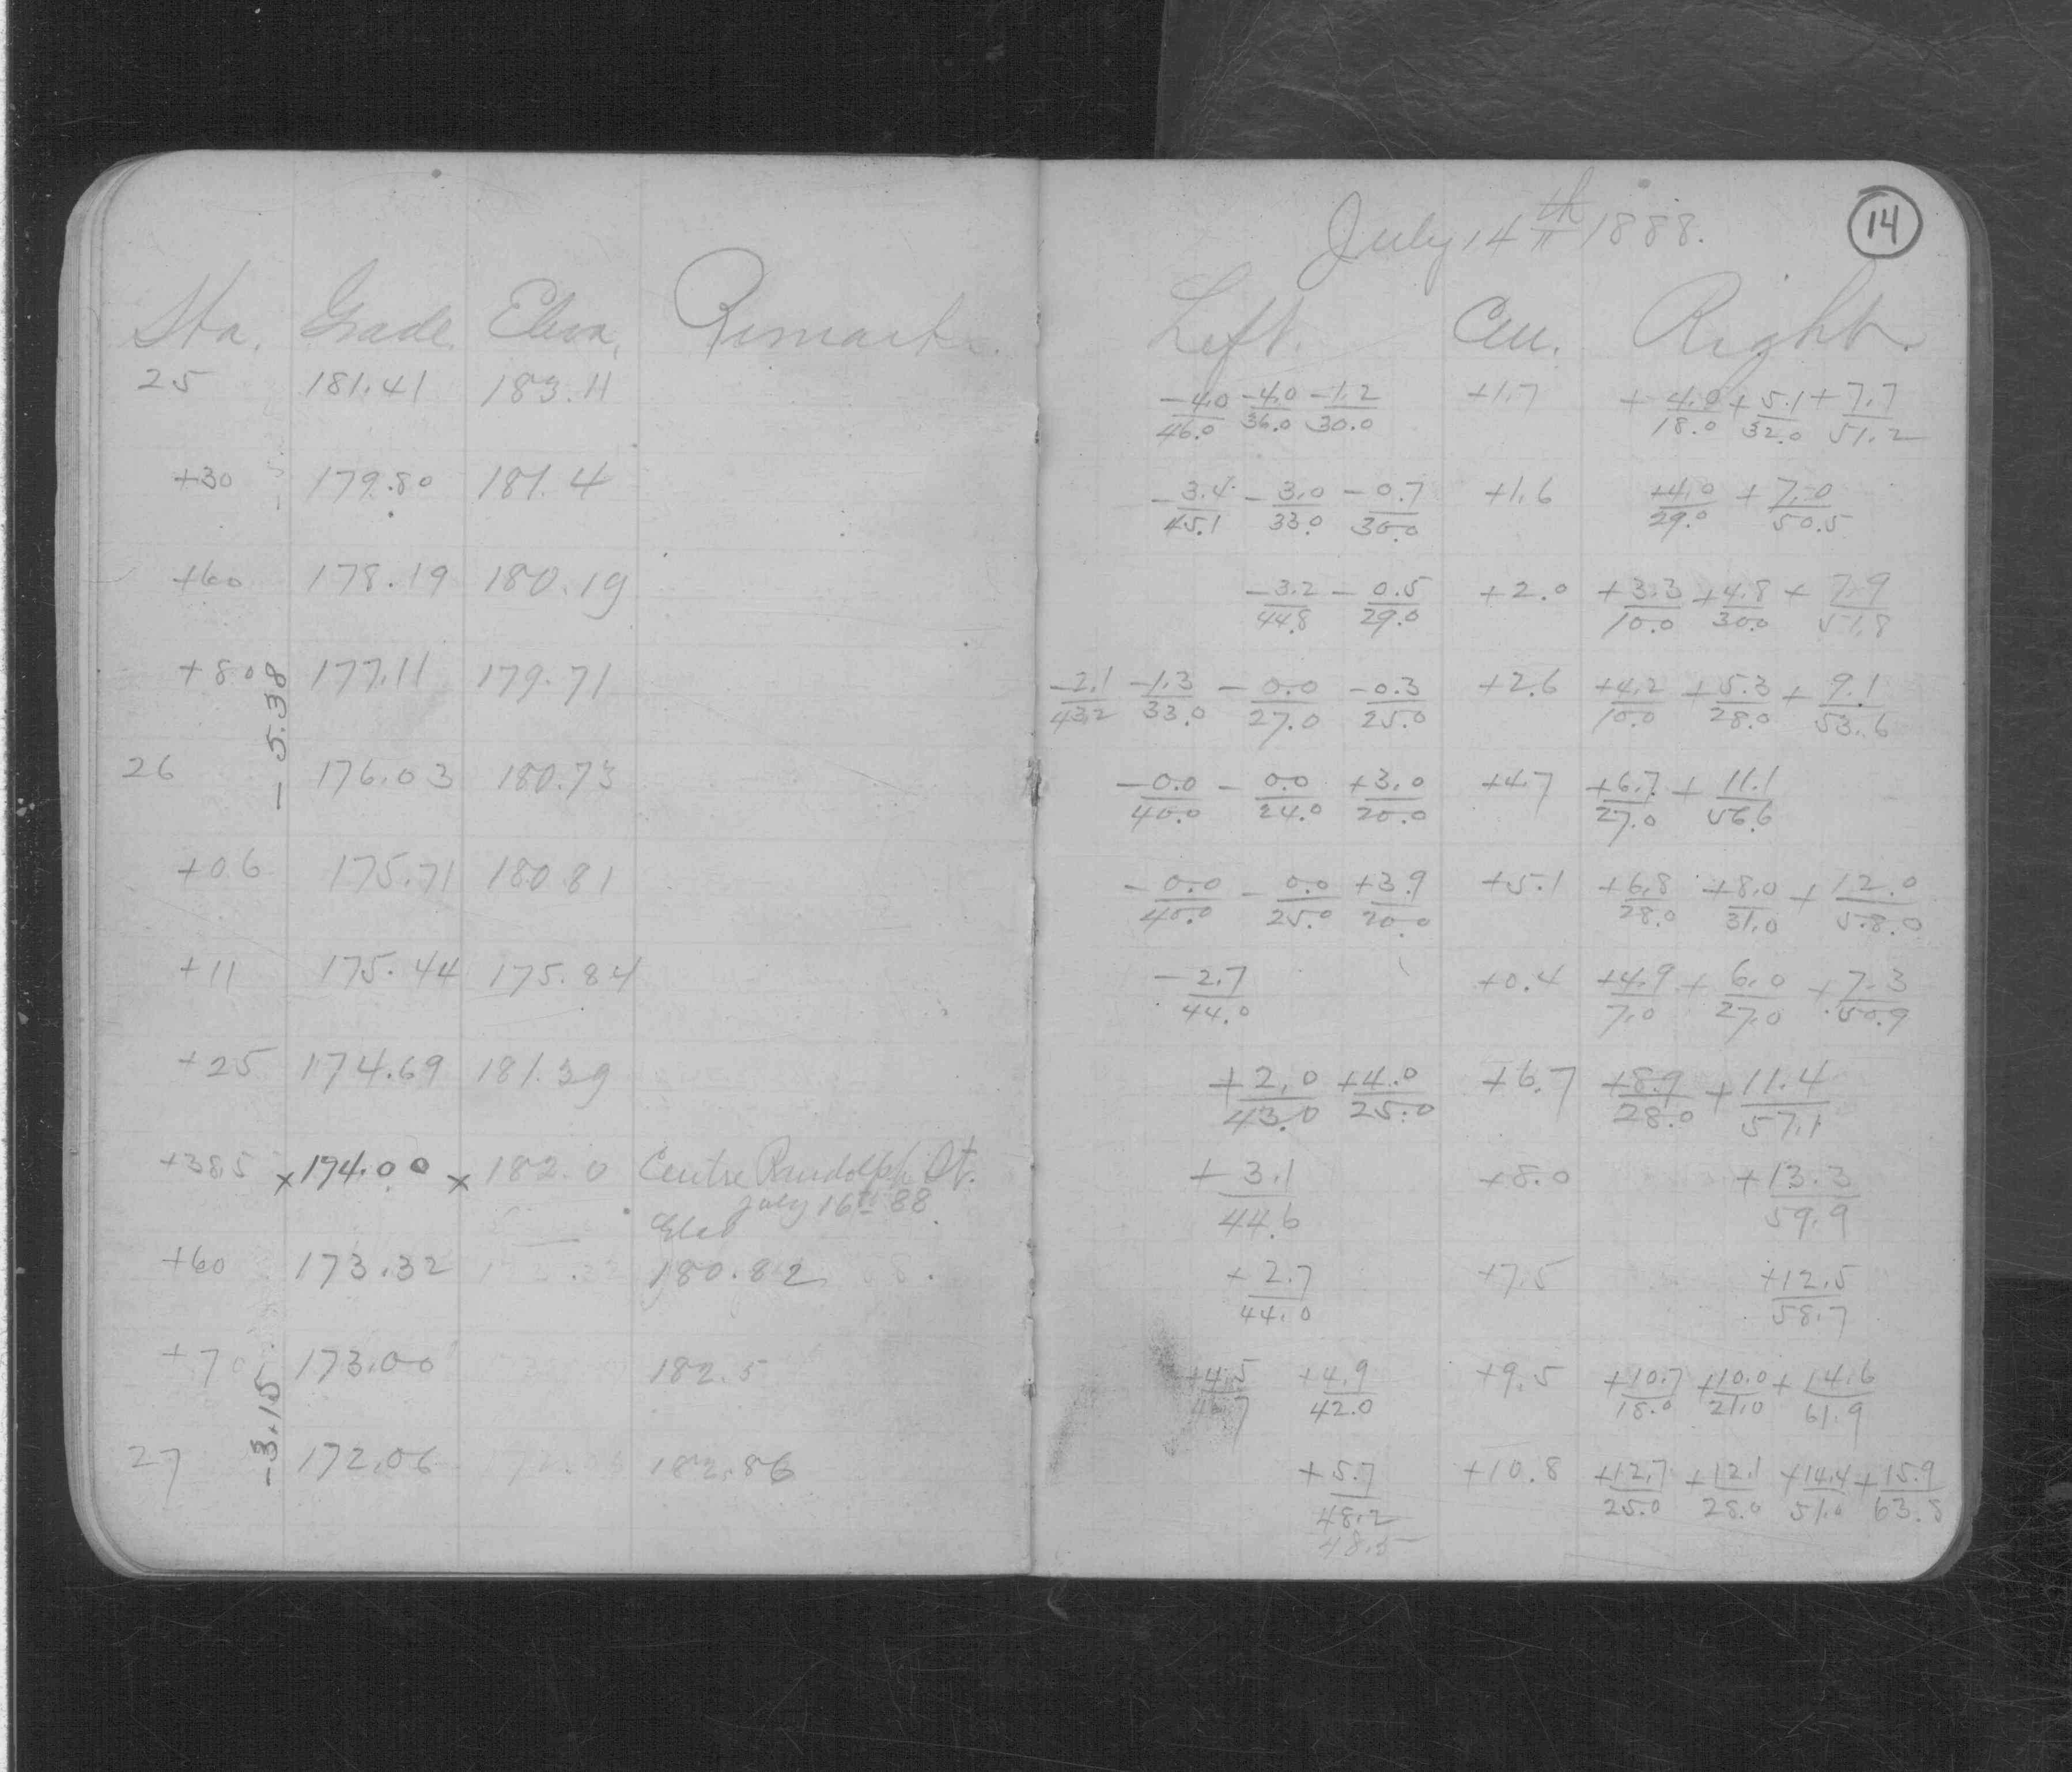 July 14th 1888.
14
Sta. Grade Eleva. Remarks.
Left. Cen. Right.
25 181.41 183.11
-4.0/46.0 -4.0/36.0 -1.2/30.0 +1.7 +4.0/18.0 +5.1/32.0 +7.7/51.2
+30 179.80 181.4
-3.4/45.1 -3.0/33.0 -0.7/30.0 +1.6 +4.0/29.0 +7.0/50.5
+60 178.19 180.19
-3.2/44.8 -0.5/29.0 +2.0 +3.3/10.0 +4.8/30.0 +7.9/51.8
+80 177.11 179.71
-2.1/43.2 -1.3/33.0 -0.0/27.0 -0.3/25.0 +2.6 +4.2/10.0 +5.3/28.0 +9.1/53.6
-5.38
26 176.03 180.73
-0.0/40.0 -0.0/24.0 +3.0/20.0 +4.7 +6.7/27.0 +11.1/56.6
+06 175.71 180.81
-0.0/40.0 -0.0/25.0 +3.9/20.0 +5.1 +6.8/28.0 +8.0/31.0 +12.0/58.0
+11 175.44 175.84
-2.7/44.0 +0.4 +4.9/7.0 +6.0/27.0 +7.3/50.9
+25 174.69 181.39
+2.0/43.0 +4.0/25.0 +6.7 +8.9/28.0 +11.4/57.1
+385 x 194.00 x 182.0 Centre Randolph St.
July 16th 88
Elev
+3.1/44.6 +8.0 +13.3/59.9
+60 173.32 180.82
+2.7/44.0 +7.5 +12.5/58.7
+70 173.00 182.5
+4.5 +4.9/42.0 +9.5 +10.7/18.0 +10.0/21.0 +14.6/61.9
-3.15
27 172.06 182.86
+5.7/48.2 +10.8 +12.7/25.0 +12.1/28.0 +14.4/51.0 +15.9/63.8
48.5